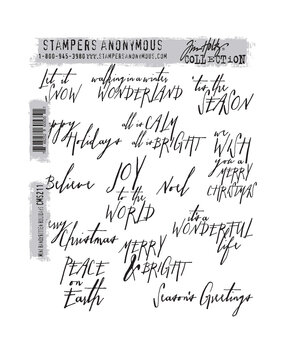 STAMPERS ANONYMOUS
1-800-945-3980
Tim Holtz
COLLECTION
Let it
SNOW
walking in a winter
WONDERLAND
'tis the
SEASON
Happy
Holidays
all is CALM
all is BRIGHT
we
WISH
you a
MERRY
CHRISTMAS
Believe
JOY
to the
WORLD
Noel
it's a
WONDERFUL
life
Merry
Christmas
MERRY
& BRIGHT
PEACE
on
Earth
Season's Greetings
MINI HANDWRITTEN HOLIDAYS CMS211